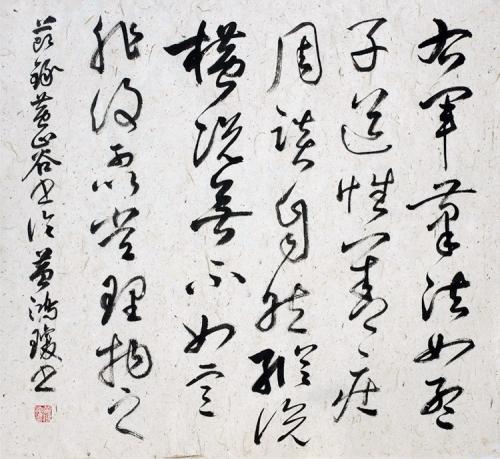 右軍筆法如孟
子道性善莊
周談自然縱説
橫説無不如意
非復可以常理拘之
節錄黃山谷書論黃鴻瓊書